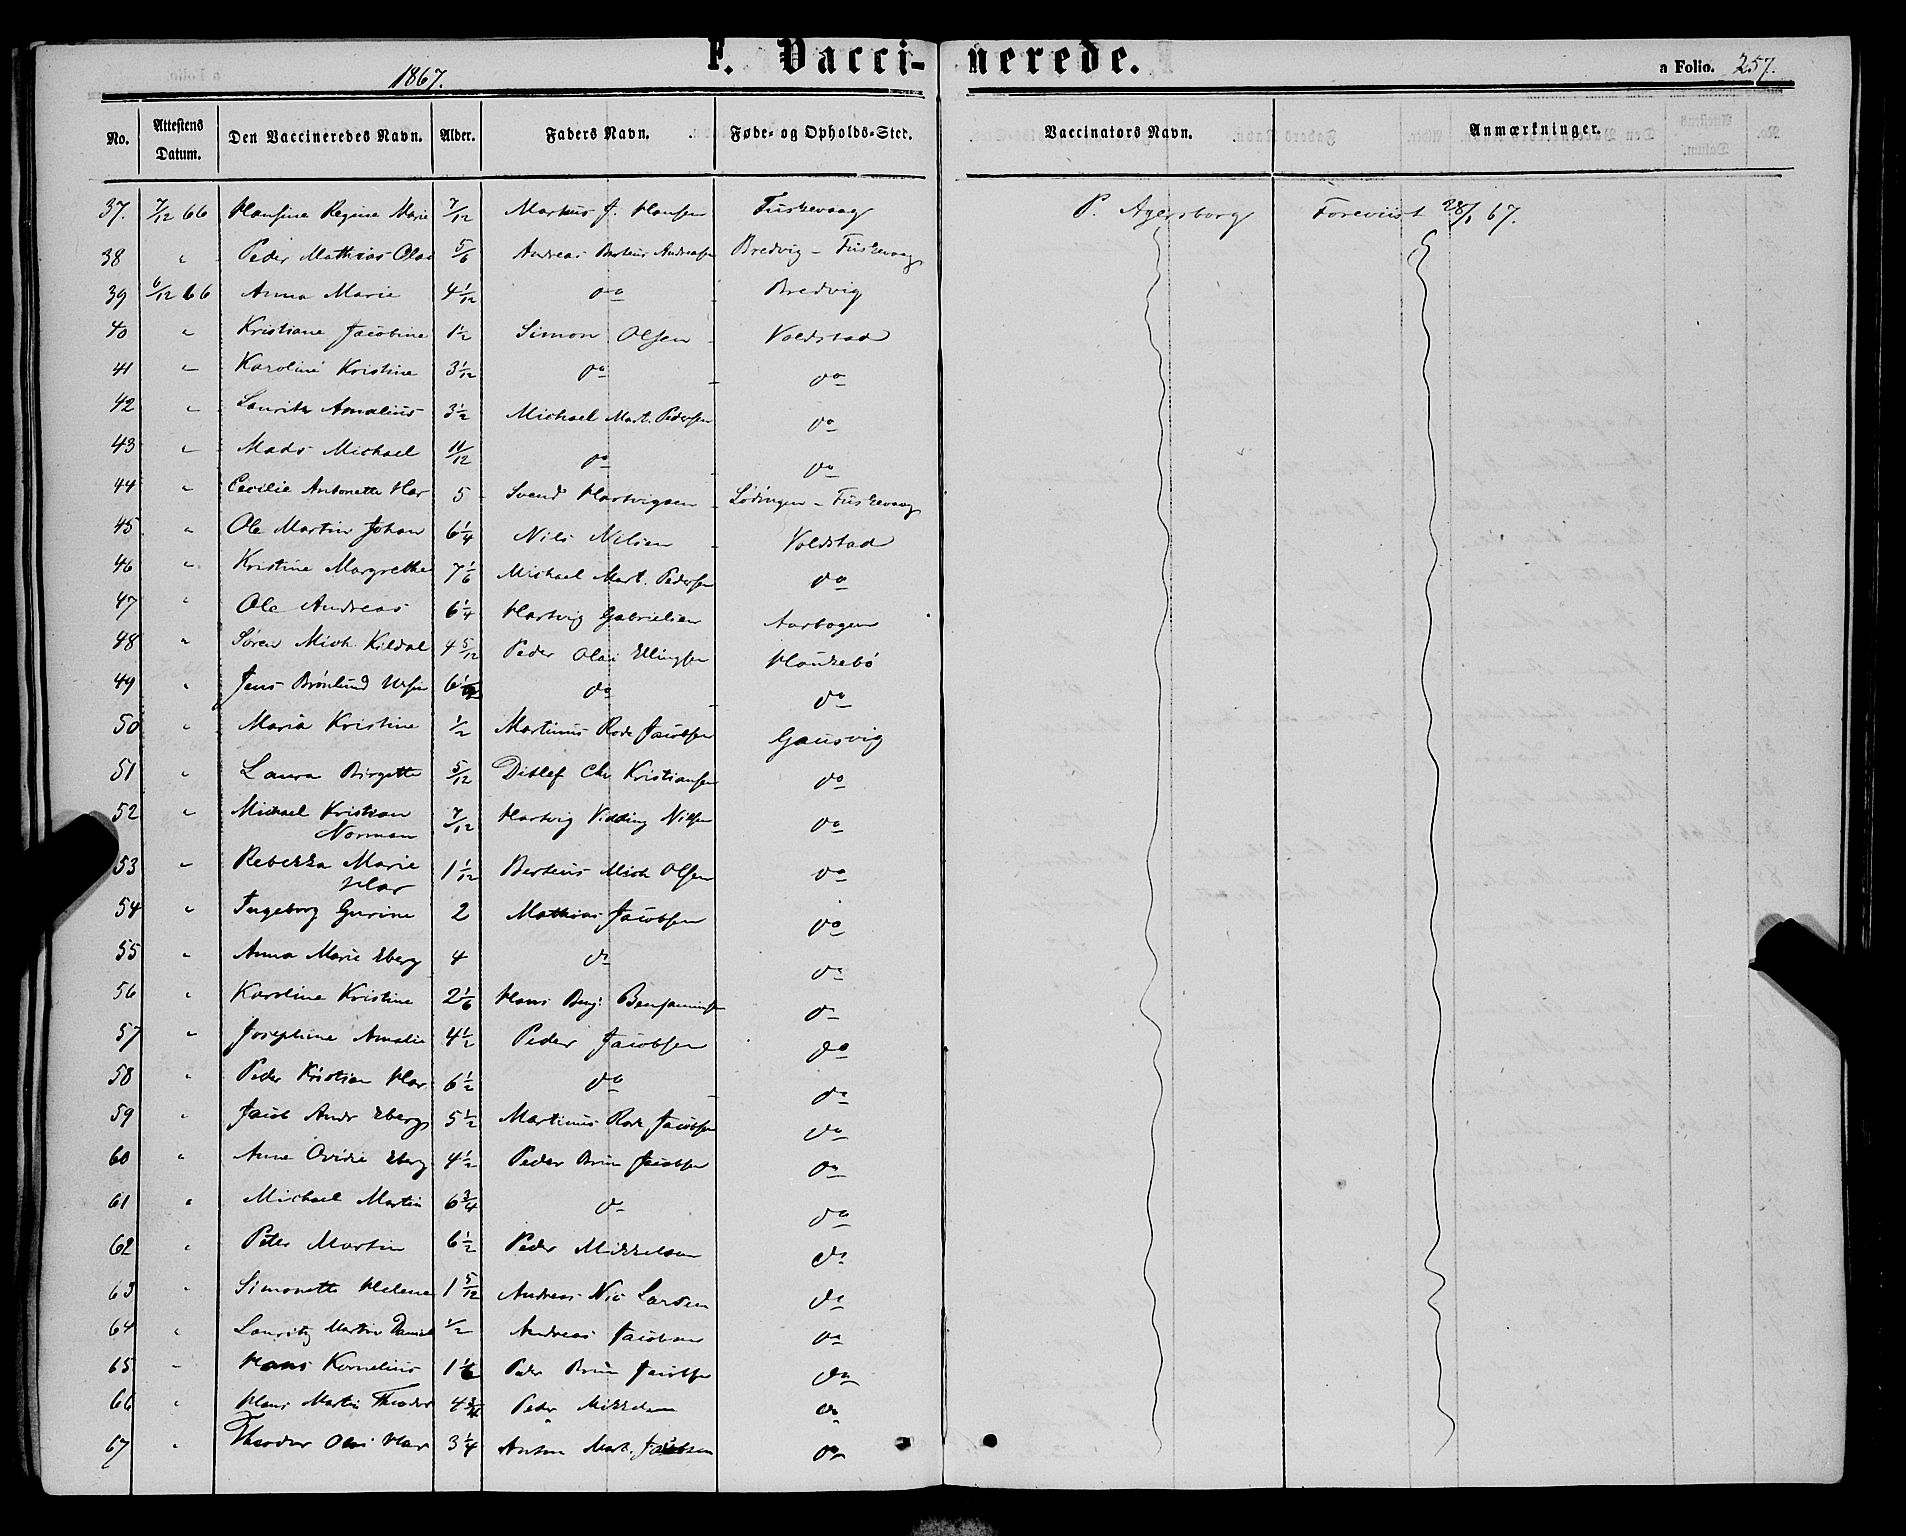 1867.
F. Vaccinerede.
a Folio. 257.
No. Attestens Datum. Den Vaccineredes Navn. Alder. Faders Navn. Føde- og Opholds-Sted. Vaccinators Navn. Anmærkninger.
37. 7/12 66 Hansine Regine Marie 7/12 Markus J. Hansen Fuskevaag P. Agersborg Foreviist 28/1 67.
38 " Peder Mathias Olai 5/6 Andreas Berteus Andreasen Bredvig - Fuskevaag
39 6/12 66 Anna Marie 4 1/12 do Bredvig
40 " Kristiane Jacobine 1 1/2 Simon Olsen Voldstad
41 " Karoline Kristine 3 1/12 do do
42 " Lauritz Amalius 3 1/2 Michael Mart. Pedersen do
43 " Mads Michael 11/12 do do
44 " Cecilie Antonette Har 5 Svend Hartvigsen Lødingen - Fuskevaag
45 " Ole Martin Johan 6 1/4 Nils Nilsen Voldstad
46 " Kristine Margrethe 7 1/6 Michael Mart. Pedersen do
47 " Ole Andreas 6 1/4 Hartvig Gabrielsen Aarbogen
48 " Søren Mich. Kildal 4 5/12 Peder Olai Ellingsen Haukebø
49 " Jens Brønlund 6 do do
50 " Maria Kristine 1/2 Martinus Rode Jacobsen Gausvig
51 " Laura Birgette 5/12 Ditlef Chr Kristiansen do
52 " Michael Kristian 7/12 Hartvig Vidding Nilsen do
Norman
53 " Rebekka Marie 1 1/12 Berteus Mich Olsen do
Har
54 " Ingeborg Gurine 2 Mathias Jacobsen do
55 " Anna Marie Eberg 4 do do
56 " Karoline Kristine 2 1/6 Hans Benj. Benjaminsen do
57 " Josephine Amalie 4 1/2 Peder Jacobsen do
58 " Peder Kristian Har 6 1/2 do do
59 " Jacob Andr Eberg 5 1/2 Martinus Rode Jacobsen do
60 " Anne Ovidie Eberg 4 1/2 Peder Brun Jacobsen do
61 " Michael Martin 6 3/4 do do
62 " Peter Martin 6 1/2 Peder Mikkelsen do
63 " Simonette Helene 1 5/12 Andreas Nic Larsen do
64 " Lauritz Martin Daniel 1/2 Andreas Jacobsen do
65 " Hans Kornelius 1 1/6 Peder Brun Jacobsen do
66 " Hans Martin Theodor 4 3/4 Peder Mikkelsen do
67 " Theodor Olai Har 3 1/4 Anton Mart. Jacobsen do